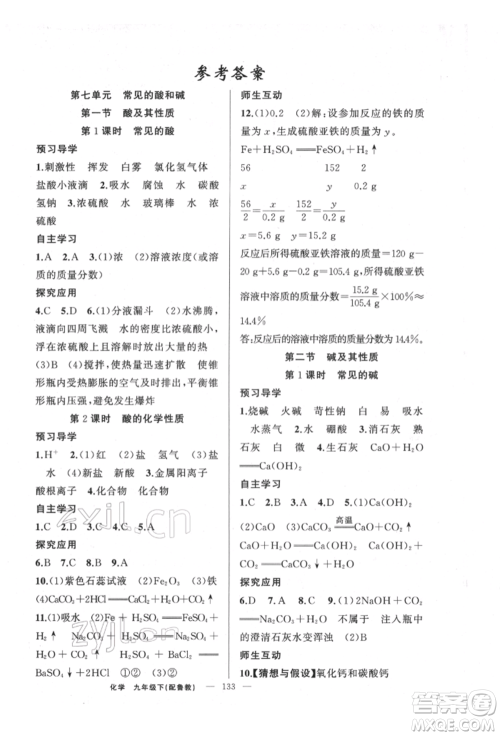 参考答案
第七单元　常见的酸和碱
第一节　酸及其性质
第1课时　常见的酸
预习导学
1.刺激性　挥发　白雾　氯化氢气体
盐酸小液滴　2.吸水　腐蚀　水　碳酸
氢钠　3.浓硫酸　玻璃棒　水　浓硫酸
硫酸
自主学习
1.A　2.A　3.(1)浓　(2)浓硫酸浓度(或溶
质的质量分数)
探究应用
4.C　5.D　6.(1)分液漏斗　(2)水沸腾,
液滴向四周飞溅　水　浓硫酸密度大于
水,浓硫酸在水下,溶解放热使水沸腾
(3)B　(4)搅拌,使热量迅速扩散　使锥
形瓶内受热膨胀的空气逸出,平衡锥形
瓶内外气压,避免发生爆炸
第2课时　酸的化学性质
预习导学
1.H⁺　2.(1)红　(2)盐　氢气　(3)盐
水　(5)新盐　新酸　3.金属阳离子
酸根离子　4.化合物　化合物
自主学习
1.C　2.D　3.C　4.C　5.A
探究应用
6.B　7.B　8.B　9.A
10.(1)紫色石蕊试液　(2)Fe₂O₃　(3)铁
(4)CaCO₃+2HCl══CaCl₂+H₂O+CO₂↑
11.(1)吸水　(2)Fe+H₂SO₄══FeSO₄
+H₂↑　不变　(3)BaCl₂+H₂SO₄══
BaSO₄↓+2HCl　(4)①②　①
师生互动
12.(1)0.2　(2)解:设参加反应的铁的质
量为 x,生成硫酸亚铁的质量为 y。
Fe+H₂SO₄══FeSO₄+H₂↑
56　152　2
x　y　0.2 g
56/2=x/0.2 g　152/2=y/0.2 g
x=5.6 g　y=15.2 g
反应后所得硫酸亚铁溶液质量=120 g-
(20 g-5.6 g)-0.2 g=105.4 g,所得
溶液中溶质的质量分数=15.2 g/105.4 g×100%
≈14.4%
答:所得溶液中溶质的质量分数为14.4%。
第二节　碱及其性质
第1课时　常见的碱
预习导学
1.烧碱　火碱　苛性钠　白　易　吸水
水蒸气　2.水　硼酸　3.白　微　熟
石灰　消石灰　生石灰　CaO+H₂O
══Ca(OH)₂
自主学习
1.C　2.D　3.A　4.D　5.(1)Ca(OH)₂
(2)CaO　(3)CaCO₃ 高温══ CaO+CO₂↑
(4)CaO+H₂O══Ca(OH)₂
探究应用
6.D　7.A　8.C　9.(1)2NaOH+CO₂
══Na₂CO₃+H₂O　不属于　注入瓶中
的澄清石灰水变浑浊　(2)BD
师生互动
10.【猜想与假设】氧化钙和碳酸钙
化学　九年级下(配鲁教)　—133—
zyjl.cn